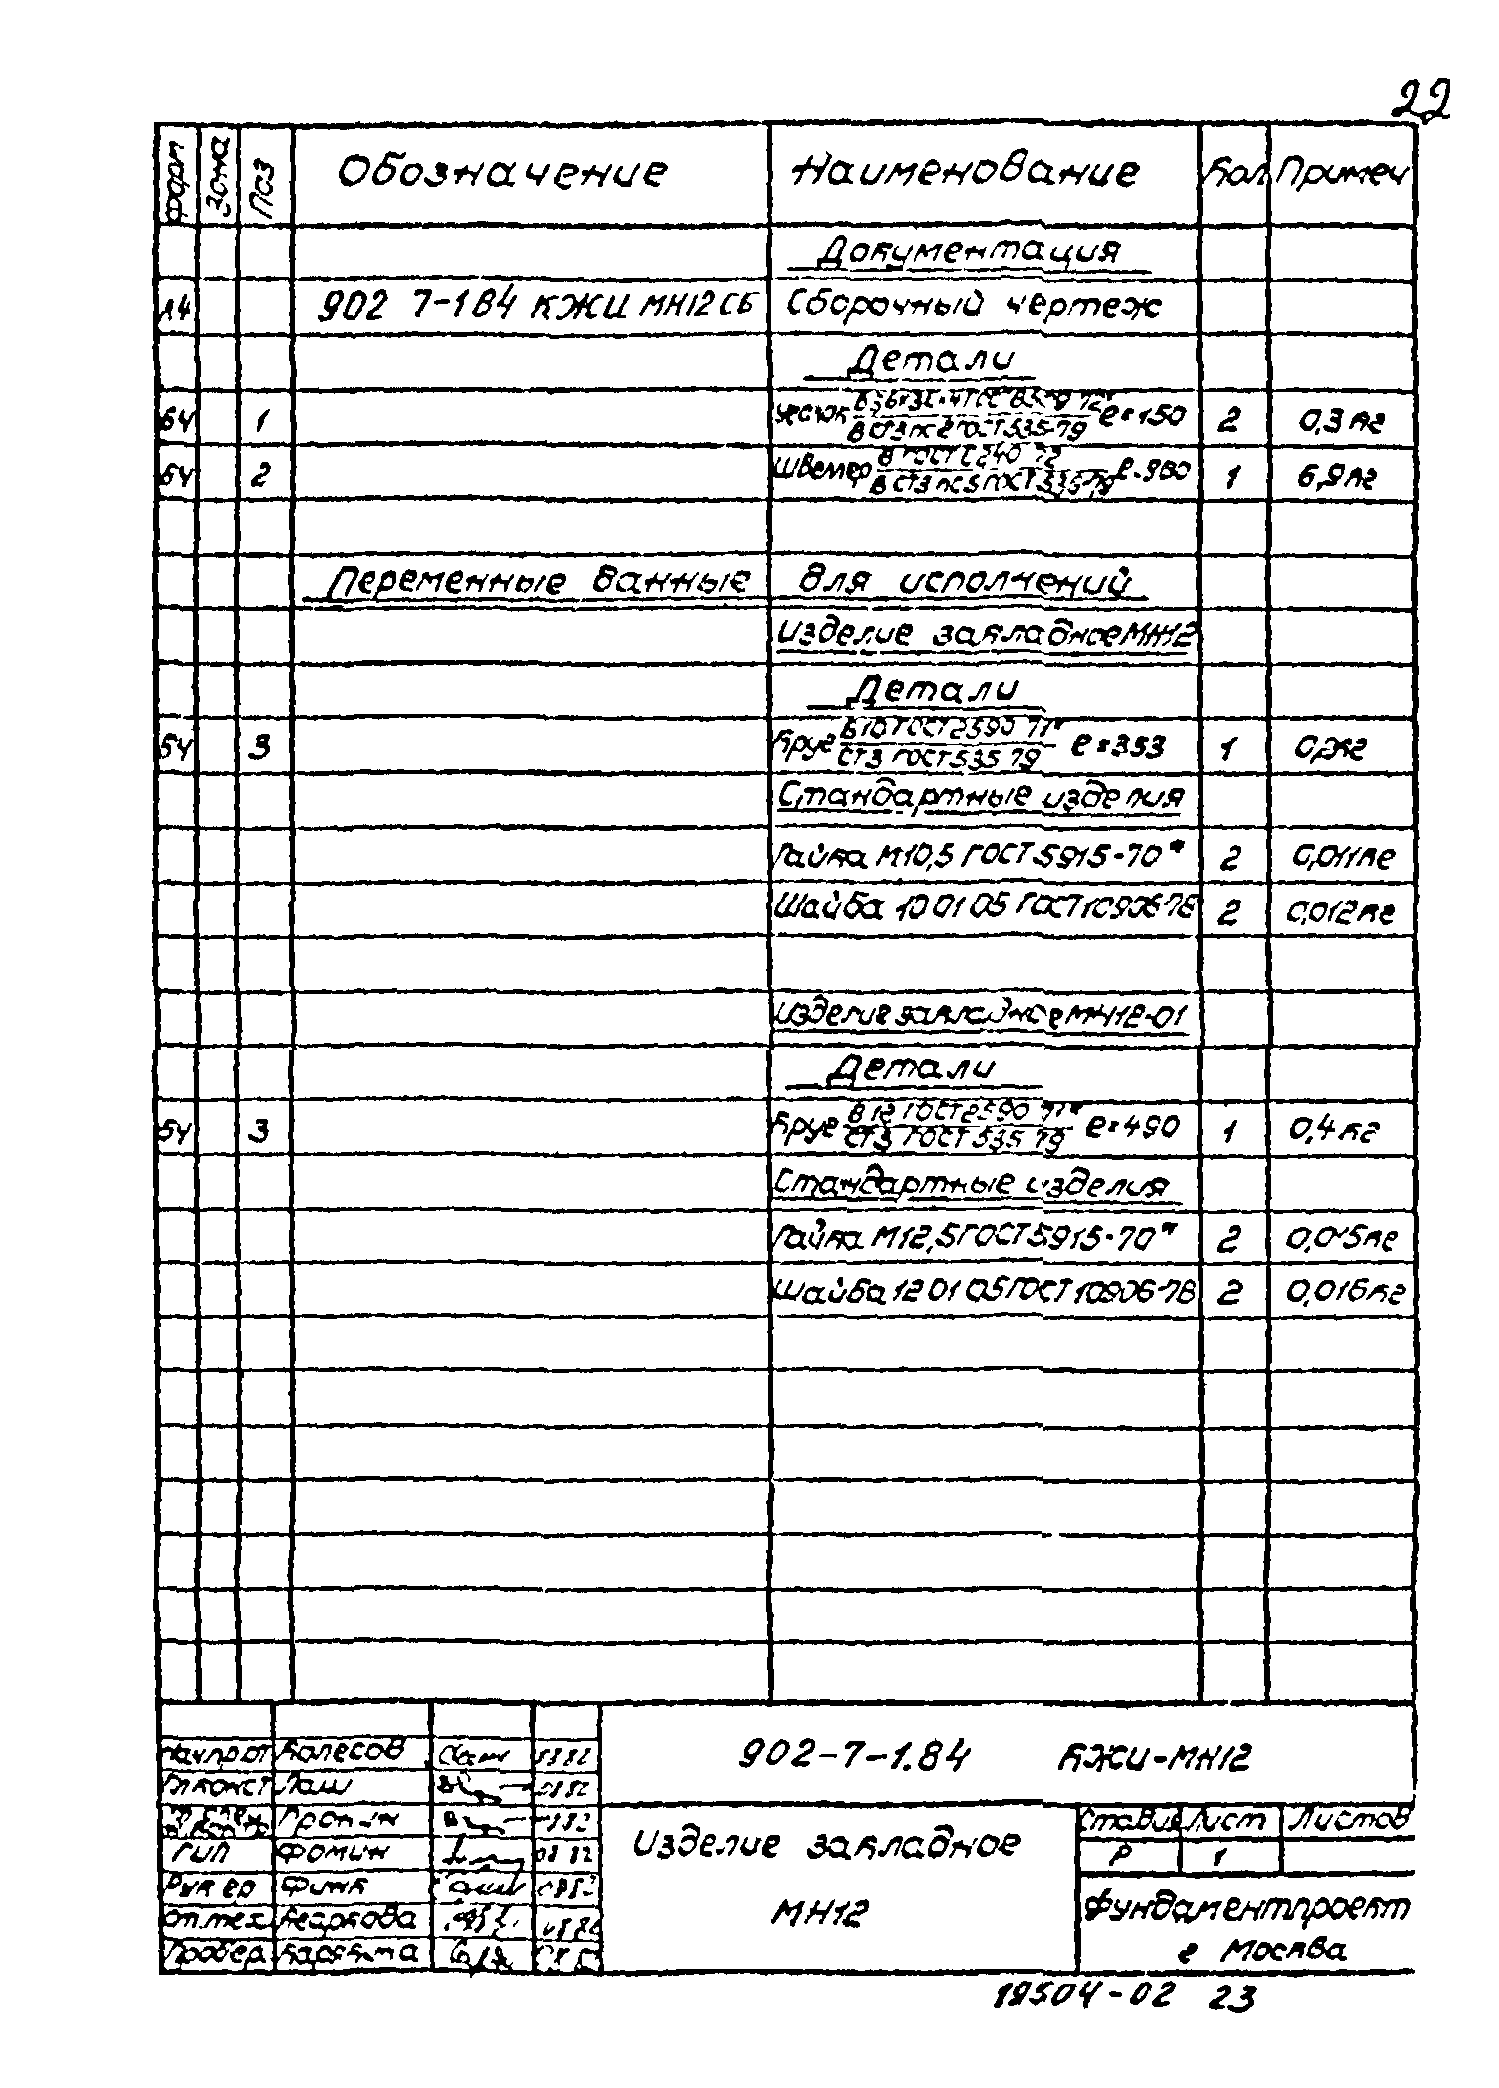 22
Форм Зона Поз Обозначение Наименование Кол Примеч
Документация
А4 902 7-1 84 КЖИ МН12СБ Сборочный чертеж
Детали
БЧ 1 Уголок ГОСТ 8509 72* ВСт3 пс2 ГОСТ 535-79 ℓ=150 2 0,3 кг
БЧ 2 Швеллер 8 ГОСТ 8240 72 ВСт3 пс5 ГОСТ 535-79 ℓ=980 1 6,9 кг
Переменные данные для исполнений
Изделие закладное МН12
Детали
БЧ 3 Круг В10 ГОСТ 2590 71* Ст3 ГОСТ 535 79 ℓ=353 1 0,2кг
Стандартные изделия
Гайка М10,5 ГОСТ 5915-70* 2 0,011кг
Шайба 10 01 05 ГОСТ 10906-78 2 0,012кг
Изделие закладное МН12-01
Детали
БЧ 3 Круг В12 ГОСТ 2590 71* Ст3 ГОСТ 535 79 ℓ=490 1 0,4 кг
Стандартные изделия
Гайка М12,5 ГОСТ 5915-70* 2 0,015кг
Шайба 12 01 05 ГОСТ 10906-78 2 0,016кг
902-7-1.84 КЖИ-МН12
Нач пр от Колесов 0882
Гл конст Лаш 0882
ГИП Фомин 0882
Рук гр Финк 0882
Ст.тех.
Провер
Изделие закладное
МН12
Стадия Лист Листов
Р 1
Фундаментпроект
г Москва
19504-02 23